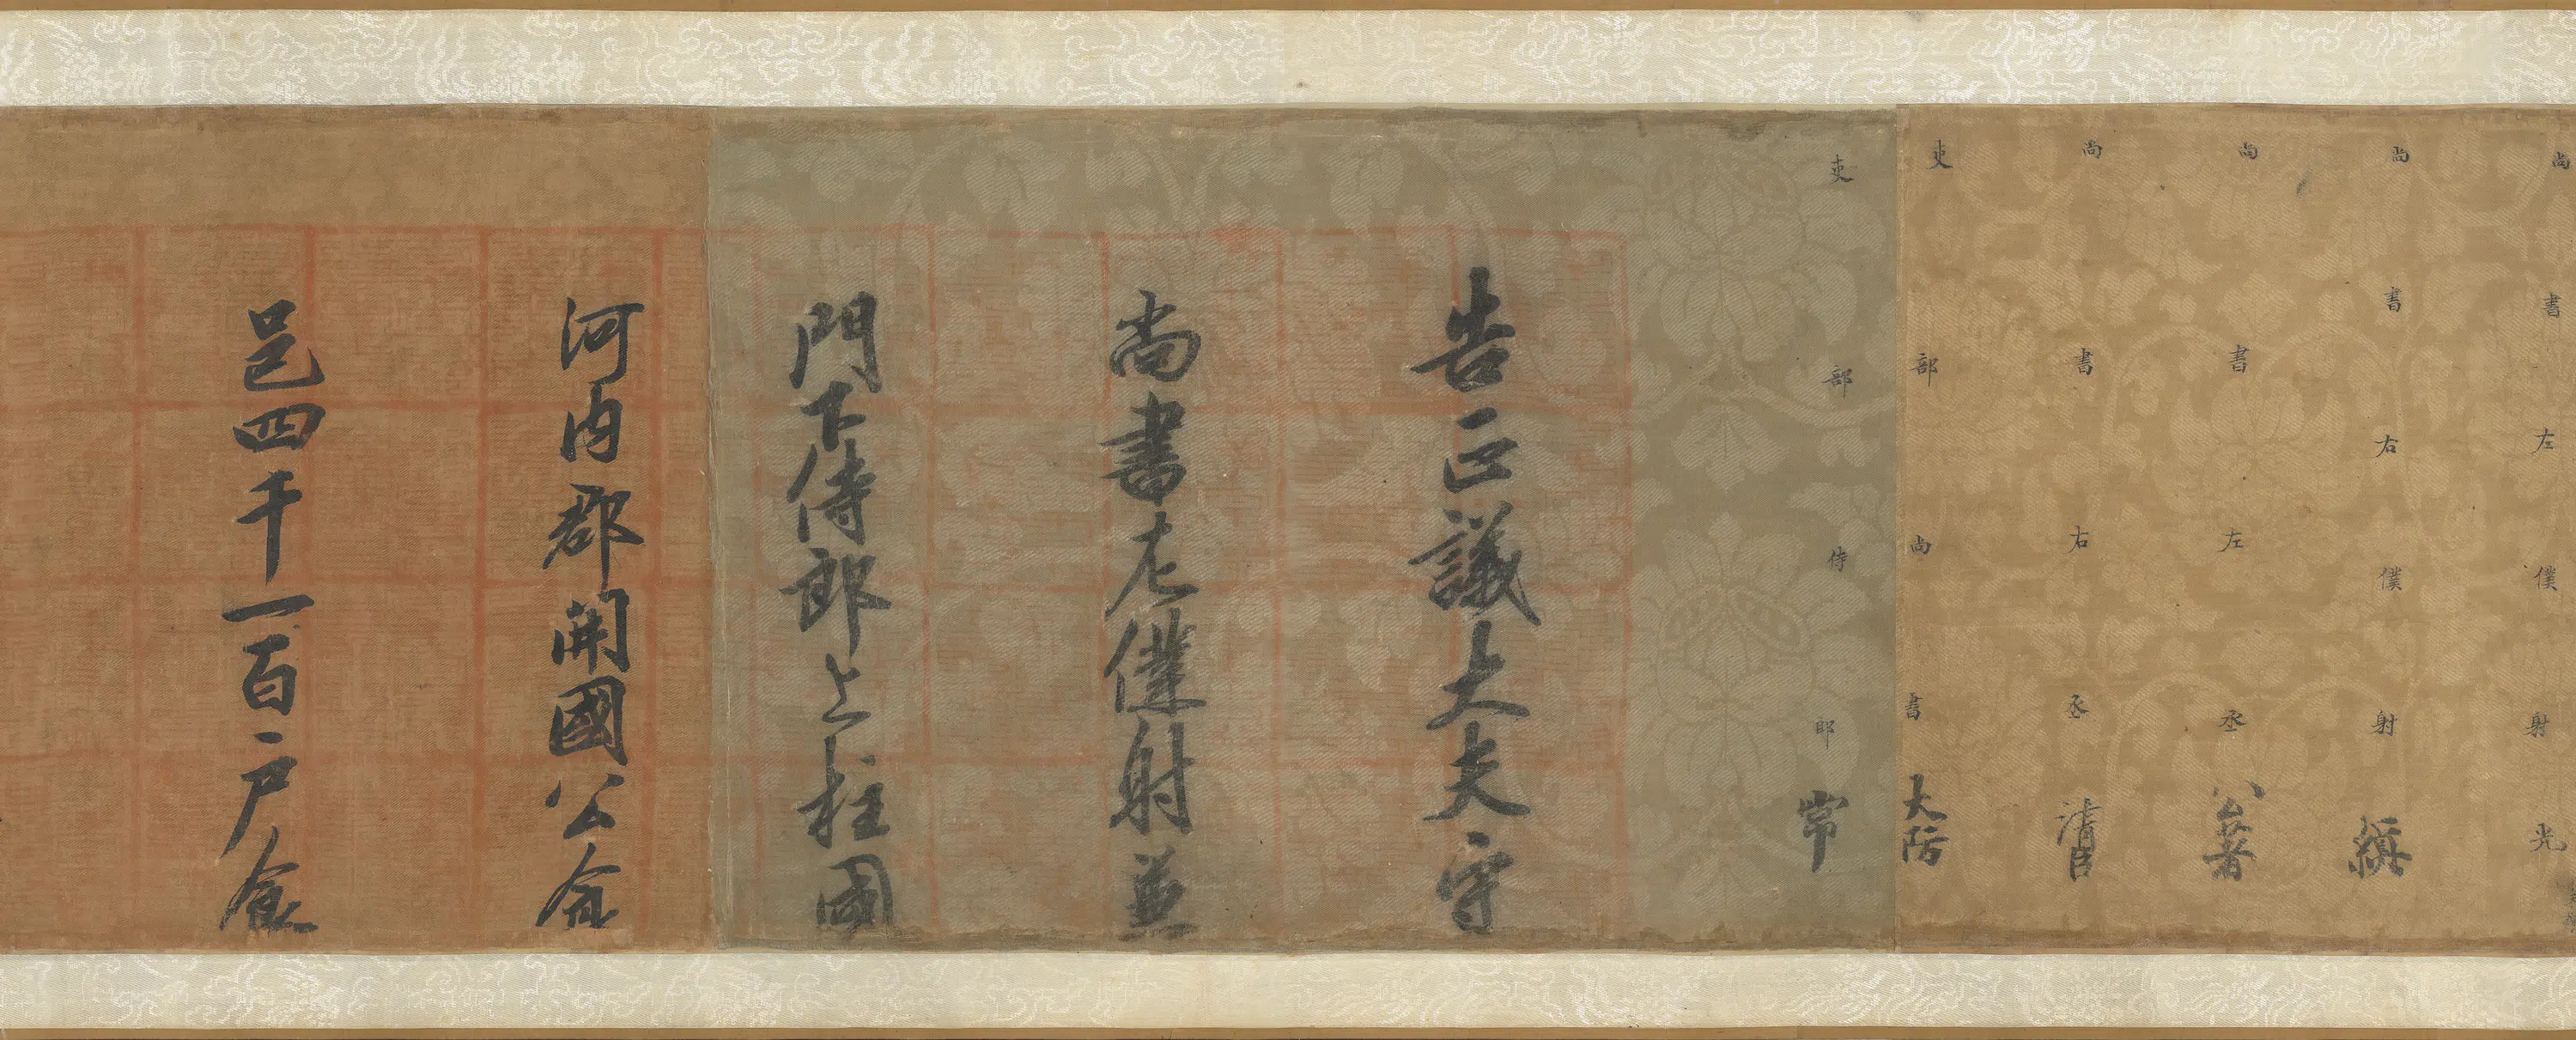 尚書左僕射光
尚書右僕射縝
尚書左丞公著
尚書右丞清臣
吏部尚書大防
吏部侍郎常
告正議大夫守
尚書左僕射兼
門下侍郎上柱國
河内郡開國公食
邑四千一百户食